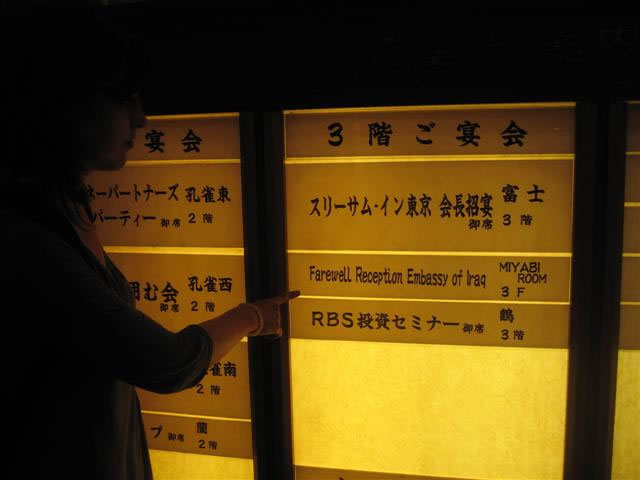 宴会
ネーパートナーズ 孔雀東
パーティー 御席 2階
囲む会 孔雀西
御席 2階
雀南
2階
プ 御席 蘭
2階
3階ご宴会
スリーサム・イン東京 会長招宴 富士
御席 3階
Farewell Reception Embassy of Iraq MIYABI ROOM
3F
RBS投資セミナー 御席 鶴
3階